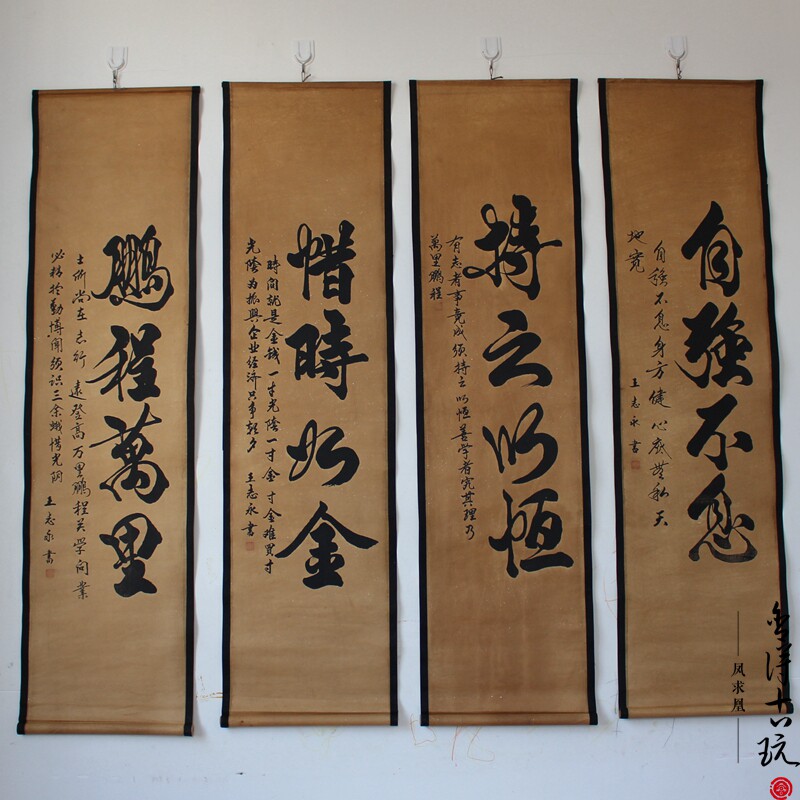 自強不息
自強不息身方健心底無私天
地寬
王志永書
持之以恆
有志者事竟成須持之以恆善學者究其理乃
萬里鵬程
惜時如金
時間就是金錢一寸光陰一寸金寸金難買寸
光陰為振興企业经济只争朝夕 王志永書
鵬程萬里
士所尚在志行遠登高万里鵬程关学问業
必精於勤博聞强识三余蛾惜光阴
王志永書
凤求凰